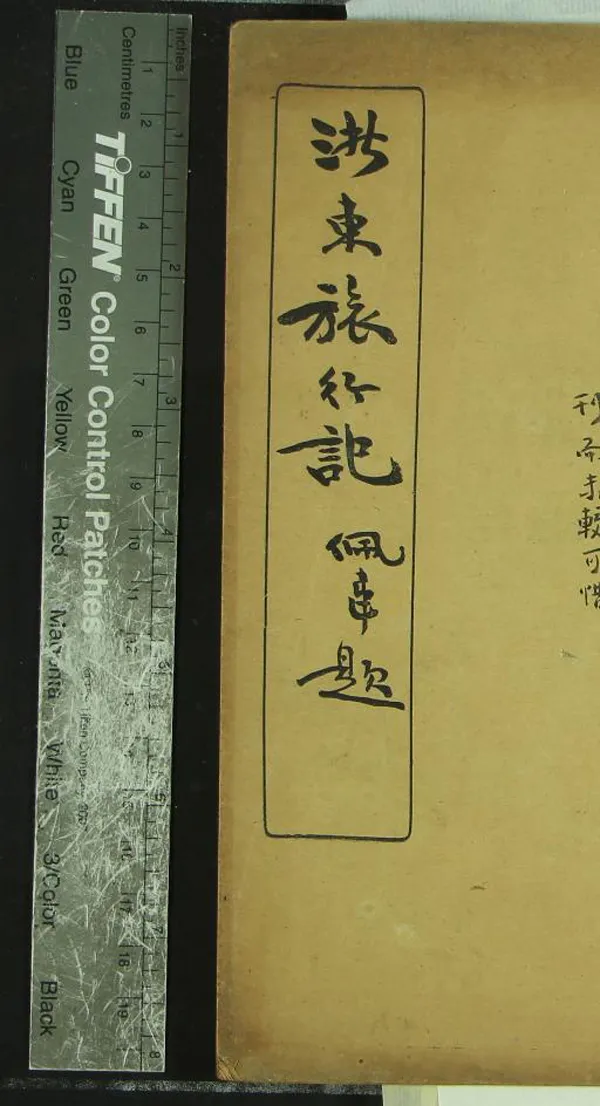 Inches
Centimetres
1 2 3 4 5 6 7 8
1 2 3 4 5 6 7 8 9 10 11 12 13 14 15 16 17 18 19
TIFFEN® Color Control Patches
© The Tiffen Company, 2007
Blue Cyan Green Yellow Red Magenta White 3/Color Black
浙東旅行記 佩韋題
較可惜